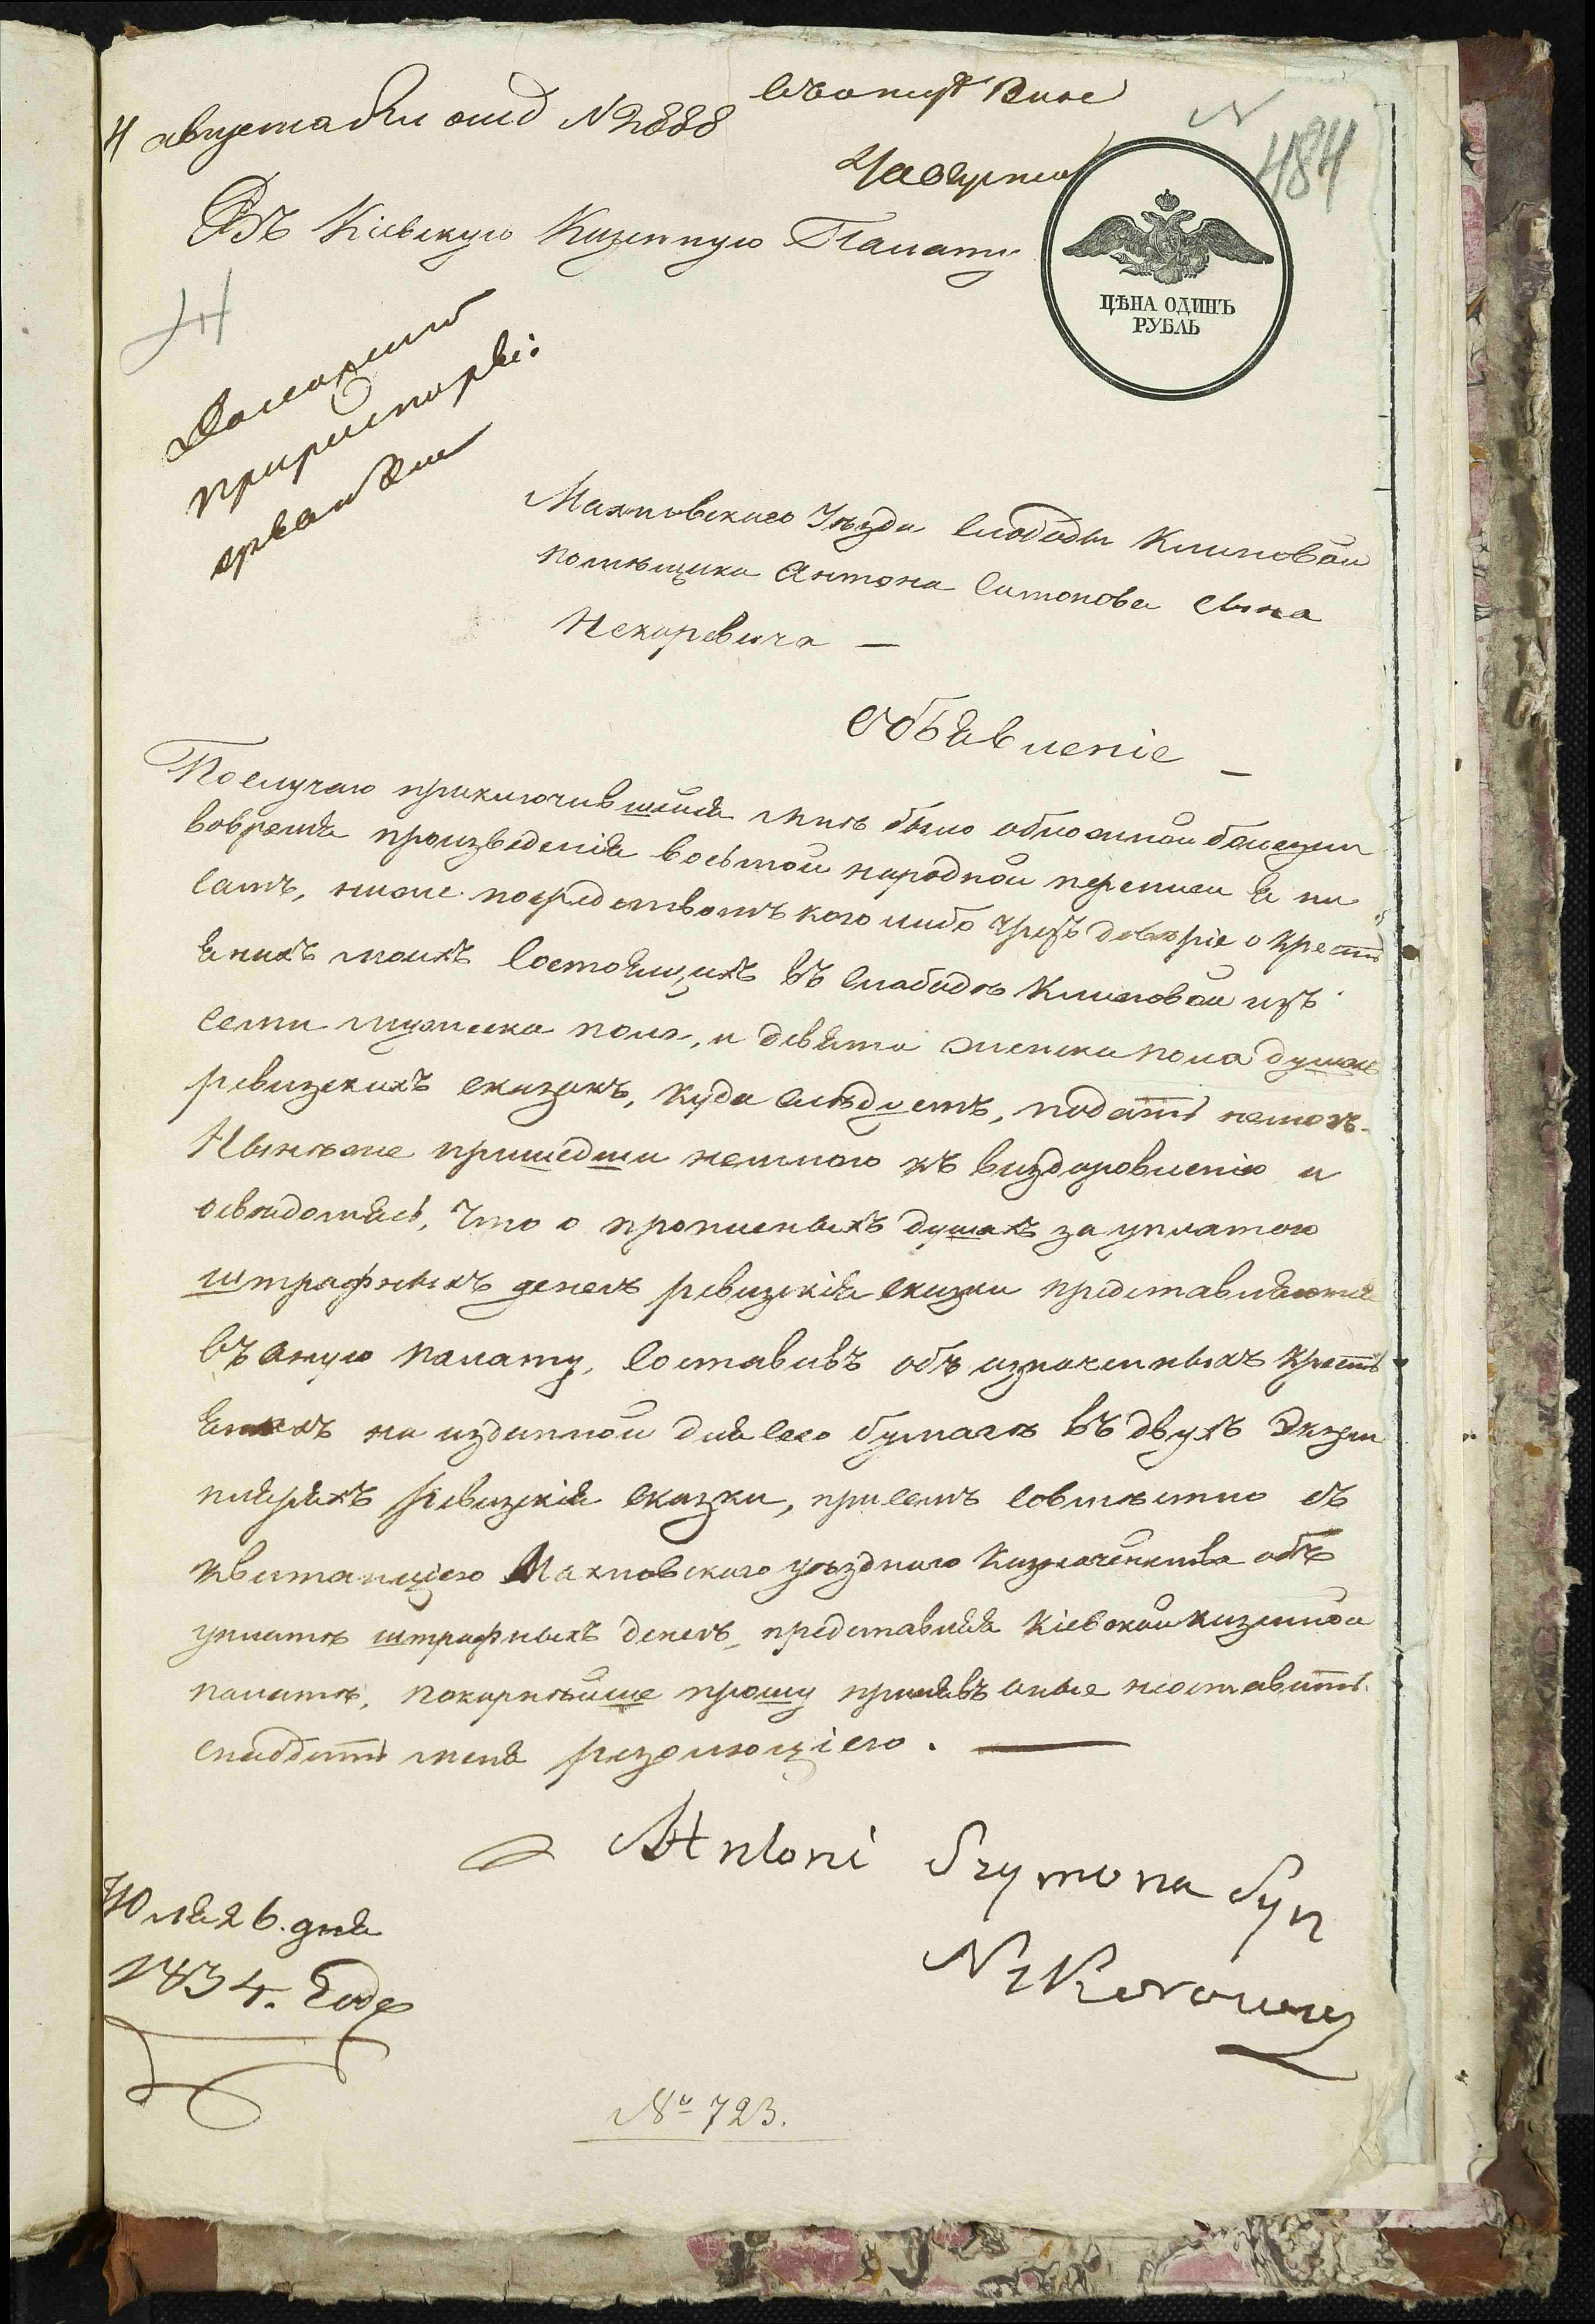 4 августа
№ 2888
484
Въ Кіевскую Казенную Палату
ЦѢНА ОДИНЪ
РУБЛЬ
Махновского Уѣзда Слободы Климовой
помѣщика Антона Симонова Сына
Некаревича —
Объявленіе —
По случаю приключившейся мнѣ было обложной болезни
вовремя произведенія восьмой народной переписи я ни
самъ, ниже посредствомъ кого либо чрезъ довѣріе о кресть
янахъ моихъ состоящихъ въ Слободѣ Климовой изъ
семи мужеска пола, и девяти женска пола душъ
ревизскихъ сказокъ, куда слѣдуетъ, подать немогъ.
Нынѣже пришедши немного къ выздоровленію и
освѣдомясь, что о прописныхъ душахъ за уплатою
штрафныхъ денегъ ревизскія сказки представляются
въ оную палату, составивъ объ означенныхъ кресть
янахъ на изданной для сего бумагѣ въ двухъ Экзем
плярахъ ревизскія сказки, присемъ совмѣстно съ
квитанціею Махновского уѣздного Казначейства объ
уплатѣ штрафныхъ денегъ, представляя Кіевской казенной
палатѣ, покорнѣйше прошу принявъ оные неоставить
снабдить меня резолюціею. —
Antoni Szymona Syn
Nekarowicz
Юля 26. дня
1834. Года
№ 723.